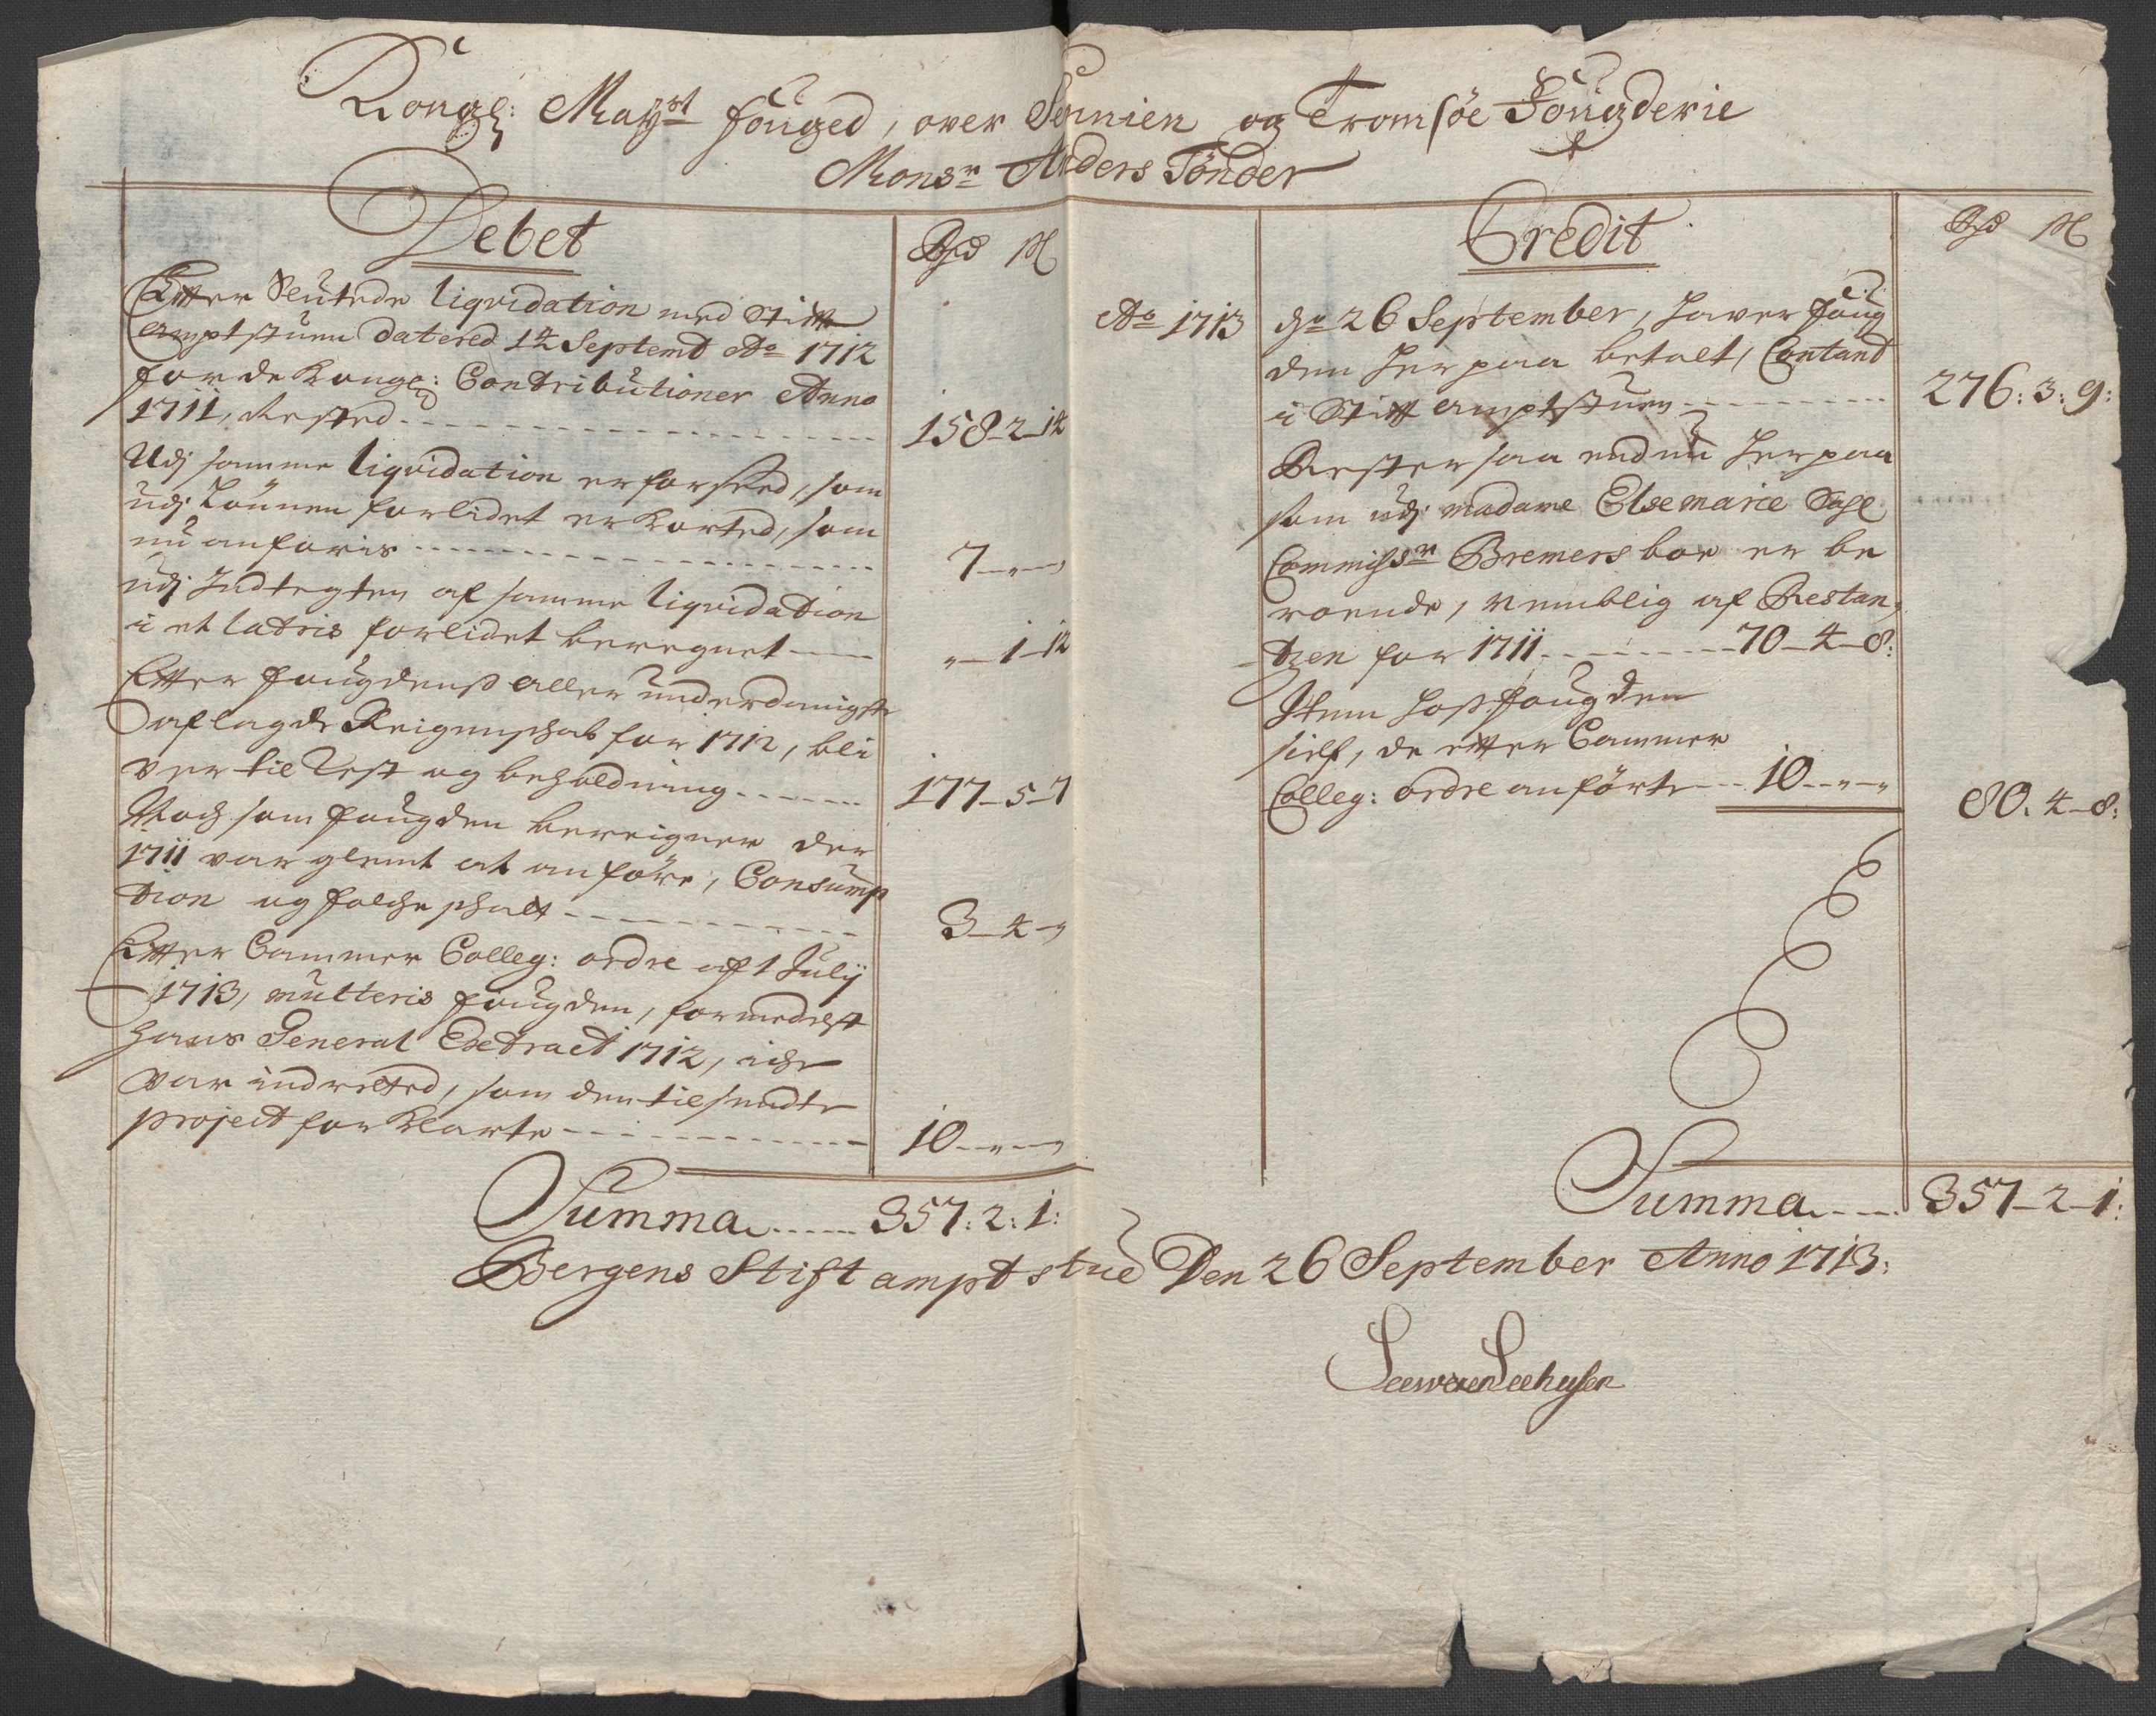 Kongl: Mayst fouged, over Sennien og Tromsøe Fougderie
Monsr Anders Tönder
Debet
Rd M
Efter Slutede liqvidation med Stift
amptstuen datered 14 Septemb Ao 1712
for de Kongl: Contributioner Anno
1711, Rested 158-2-14
Udj samme liqvidation er forseed, som
udj Lönnen forlidet er Korted, som
nu anföris 7-"-"
udj Indtegten af samme liqvidation
i et latris forlidet beregnet "-1-12
Efter fougdens aller underdanigste
aflagde Reigenschab for 1712, bli
ver til Rest og beholdning 177-5-7
Noch som fougden bereigner der
1711 var glemt at anföre, Consump
tion og folche schatt 3-4-"
Efter Cammer Colleg: ordre af 1 Julij
1713, mulcteris fougden, formedelst
hans General Extract 1712, iche
var indretted, som den tilsendte
project forklarte 10-"-"
Summa 357:2:1:
Credit
Rd M
Ao 1713
dn 26 September, haver foug
den her paa betalt, Contand
i Stift amptstuen 276:3:9:
Rester saa endnu her paa
som udj madame Else marie Sahl
Commissr Bremers boe er be
roende, nemblig af Restan
tzen for 1711 70-4-8:
Item hoss fougden
sielf, de efter Cammer
Colleg: ordre anförte 10-"-"
80.4-8:
Summa 357-2-1:
Bergens Stift ampt stue Den 26 September Anno 1713:
Seeweren Seehusen